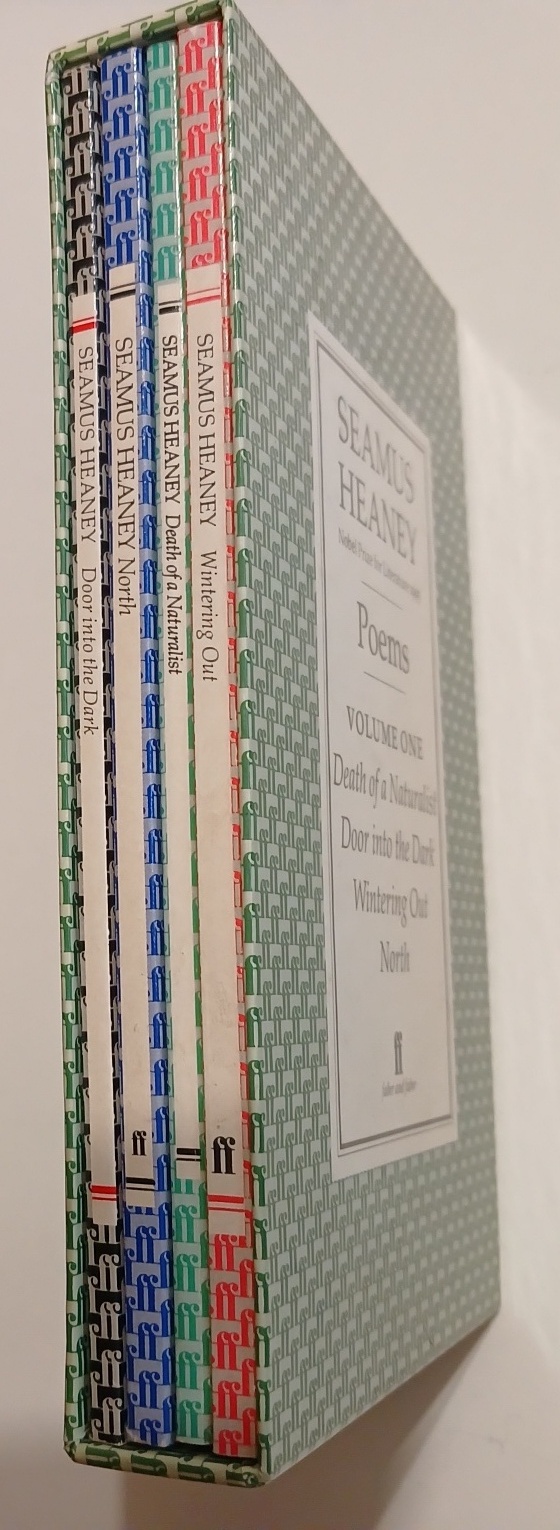 SEAMUS HEANEY Door into the Dark
SEAMUS HEANEY North
ff
SEAMUS HEANEY Death of a Naturalist
SEAMUS HEANEY Wintering Out
ff
SEAMUS
HEANEY
Nobel Prize for Literature
Poems
VOLUME ONE
Death of a Naturalist
Door into the Dark
Wintering Out
North
ff
faber and faber